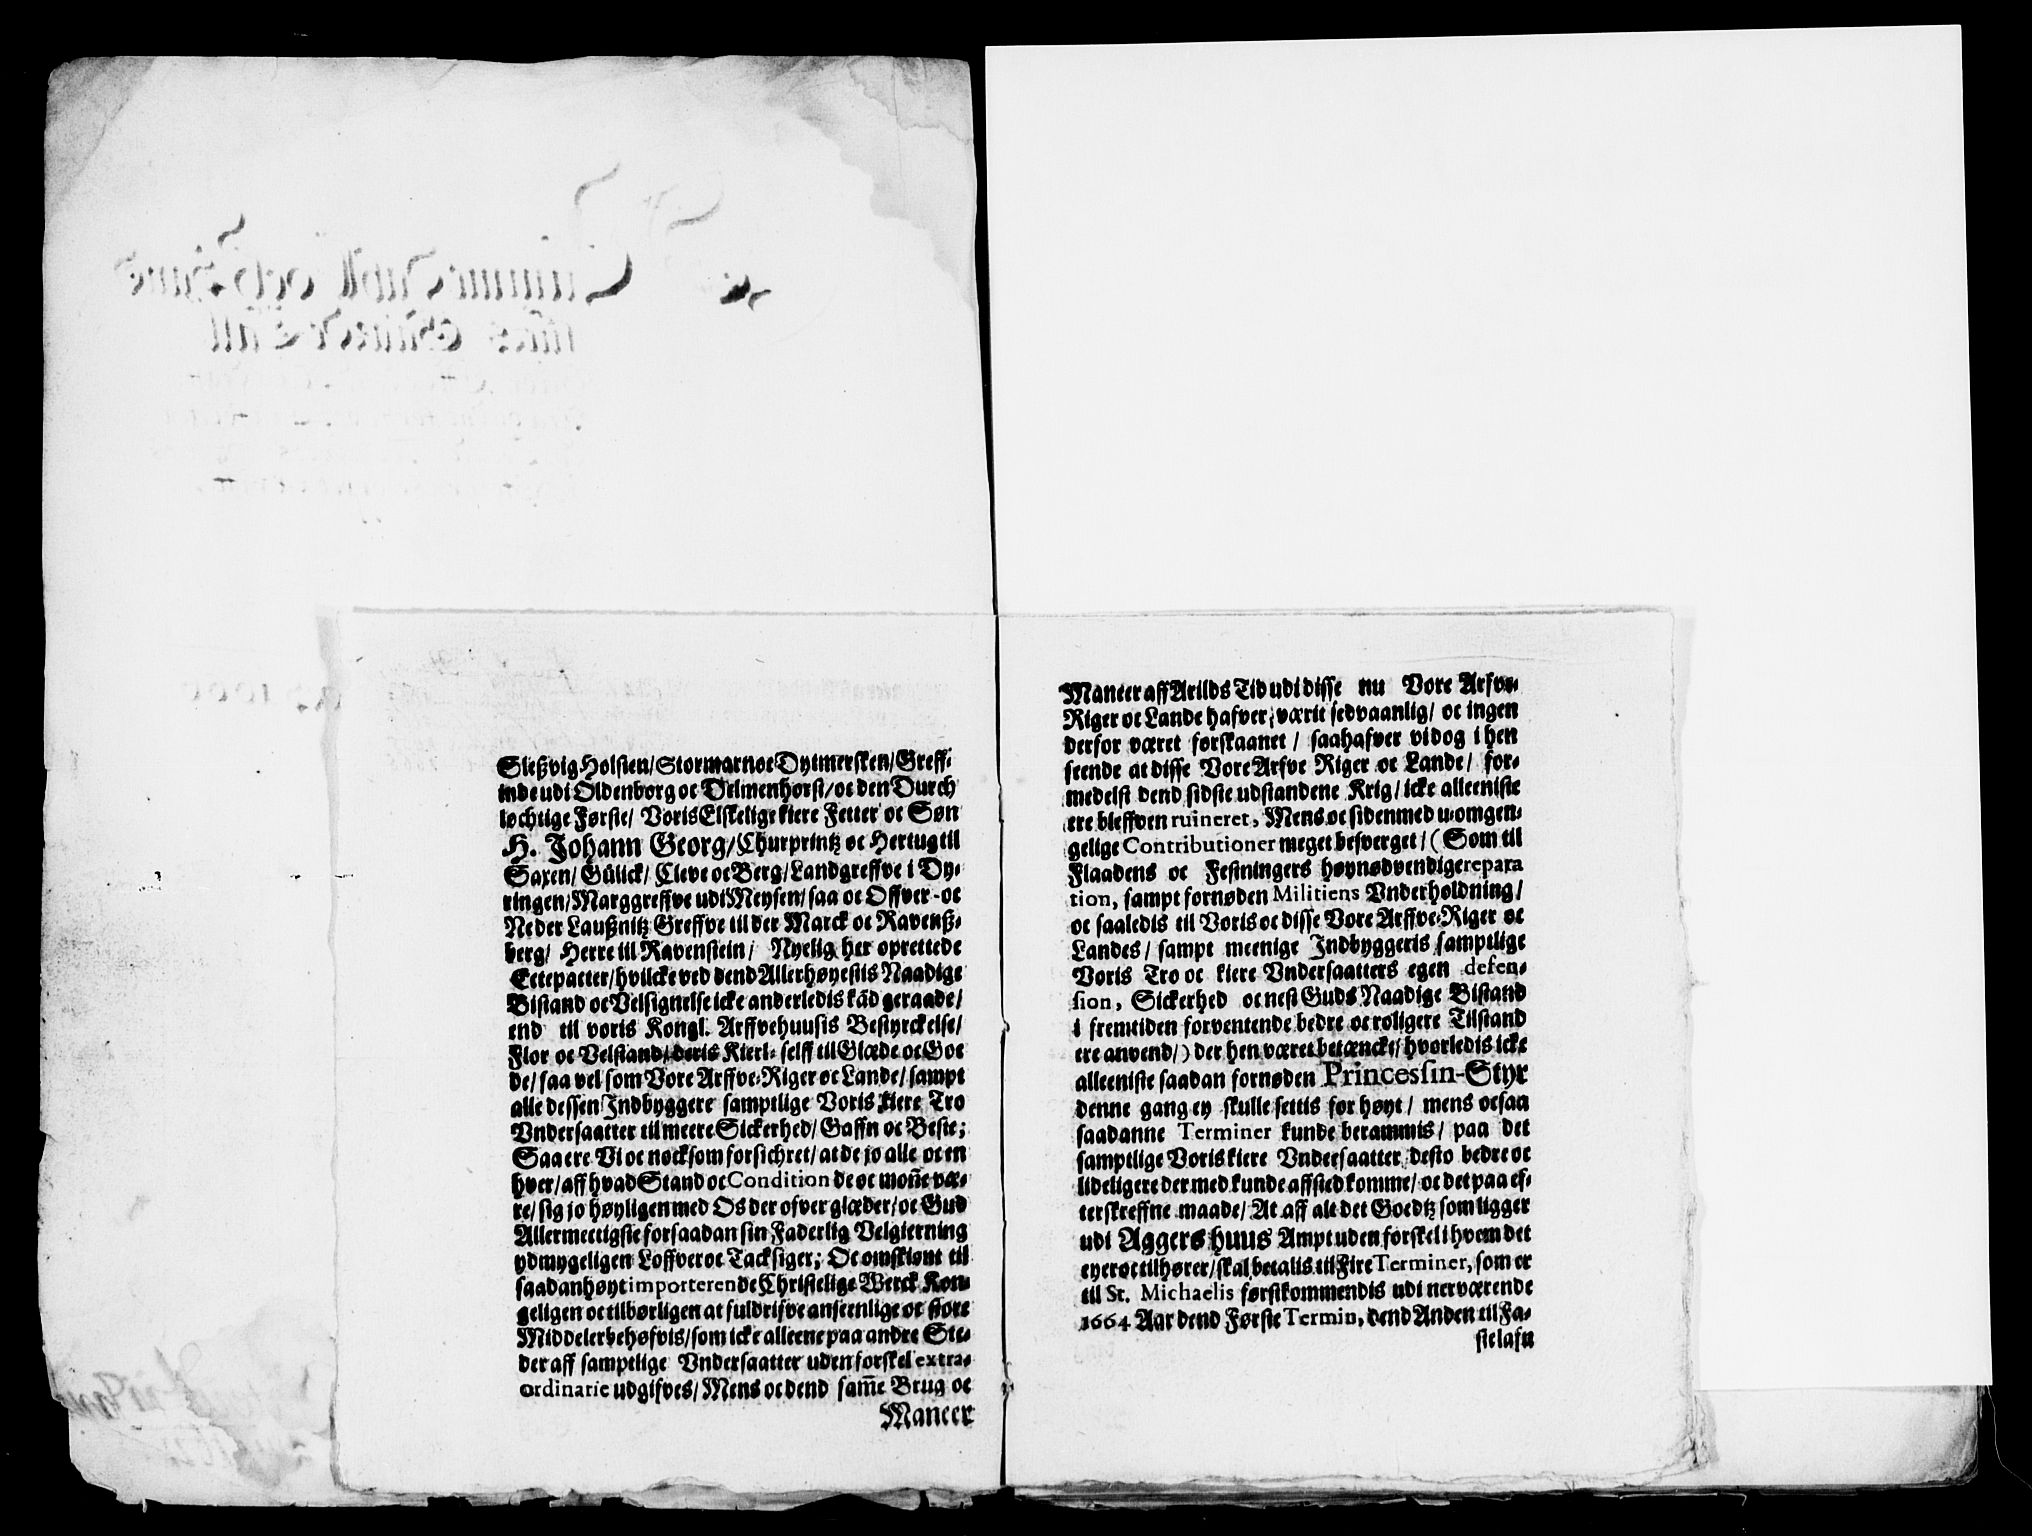 Sleßvig Holsten/ Stormarn oc Dytmersken/ Greff-
inde udi Oldenborg oc Delmenhorst/ oc den Durch
løchtige Første/ Voris Elskelige kiere Fetter oc Søn
H. Johann Georg/ Churprintz oc Hertug til
Saxen/ Gülick/ Cleve oc Berg/ Landgreffve i Dy-
ringen/ Marggreffve udi Meysen/ saa oc Offver-oc
Neder Laußnitz Greffve til der Marck oc Ravenß-
berg/ Herre til Ravenstein/ Nyelig her oprettede
Ectepacter/ hvilcke ved dend Allerhøyestis Naadige
Bistand oc Velsignelse icke anderledis kād geraade/
end til voris Kongl. Arffvehuusis Bestyrckelse/
Flor oc Velstand/ deris Kierl- selff til Glæde oc Goe
de/ saa vel som Vore Arffve-Riger oc Lande/ sampt
alle dessen Indbyggere samptlige Voris kiere Tro
Vndersaatter til meere Sickerhed/ Gaffn oc Beste;
Saa ere Vi oc nocksom forsichret/ at de jo alle oc en
hver/ aff hvad Stand oc Condition de oc mon̄e væ-
re/ sig jo høyligen med Os der ofver glæder/ oc Gud
Allermectigste for saadan sin Faderlig Velgierning
ydmygeligen Loffver oc Tacksiger; Oc omskiønt til
saadan høyt importerende Christelige Werck Kon-
geligen oc tilbørligen at fuldrifve anseenlige oc store
Middeler behøfvis/ som icke alleene paa andre Ste-
der aff samptlige Vndersaatter uden forskel extra-
ordinarie udgifves/ Mens oc dend sam̄e Brug oc
Maneer
Maneer aff Arilds Tid udi disse nu Vore Arfve-
Riger oc Lande hafver værit sedvaanlig/ oc ingen
derfor været forskaanet/ saa hafver vi dog i hen
seende at disse Vore Arfve Riger oc Lande/ for-
medelst dend sidste udstandene Krig/ icke alleeniste
ere bleffven ruineret, Mens oc siden med u-omgen-
gelige Contributioner meget besverget/ (Som til
Flaadens oc Festningers høynødvendige repara
tion, sampt fornøden Militiens Vnderholdning/
oc saaledis til Voris oc disse Vore Arffve-Riger oc
Landes/ sampt meenige Indbyggeris samptlige
Voris Tro oc kiere Vndersaatters egen defen-
sion, Sickerhed oc nest Guds Naadige Bistand
i fremtiden forventende bedre oc roligere Tilstand
ere anvend/) der hen været betænckt/ hvorledis icke
alleeniste saadan fornøden Princessin-Styr
denne gang ey skulle settis for høyt/ mens ocsaa
saadanne Terminer kunde berammis/ paa det
samptlige Voris kiere Vndersaatter desto bedre oc
lideligere der med kunde affsted komme/ oc det paa ef-
terskreffne maade/ At aff alt det Goedtz som ligger
udi Aggershuus Ampt uden forskel i hvem det
eyer oc tilhører/ skal betalis til Fire Terminer, som er
til St. Michaelis førstkommendis udi nerværende
1664 Aar dend Første Termin, dend Anden til Fa-
stelafn